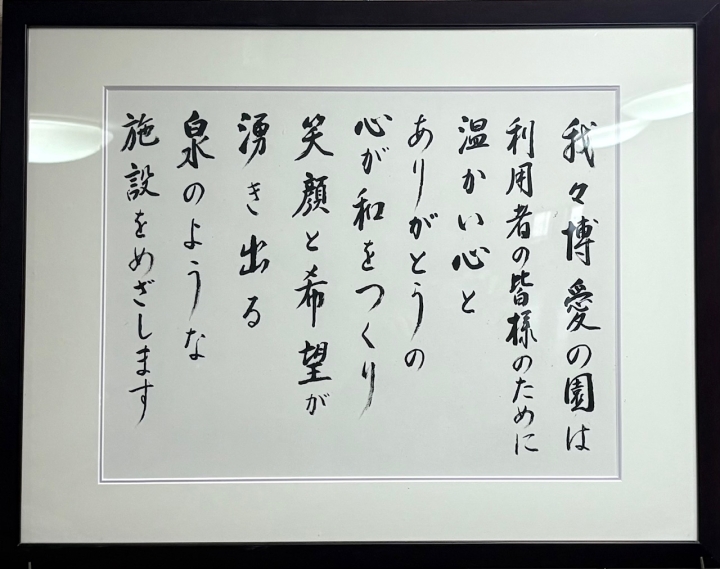 我々博愛の園は
利用者の皆様のために
温かい心と
ありがとうの
心が和をつくり
笑顔と希望が
湧き出る
泉のような
施設をめざします